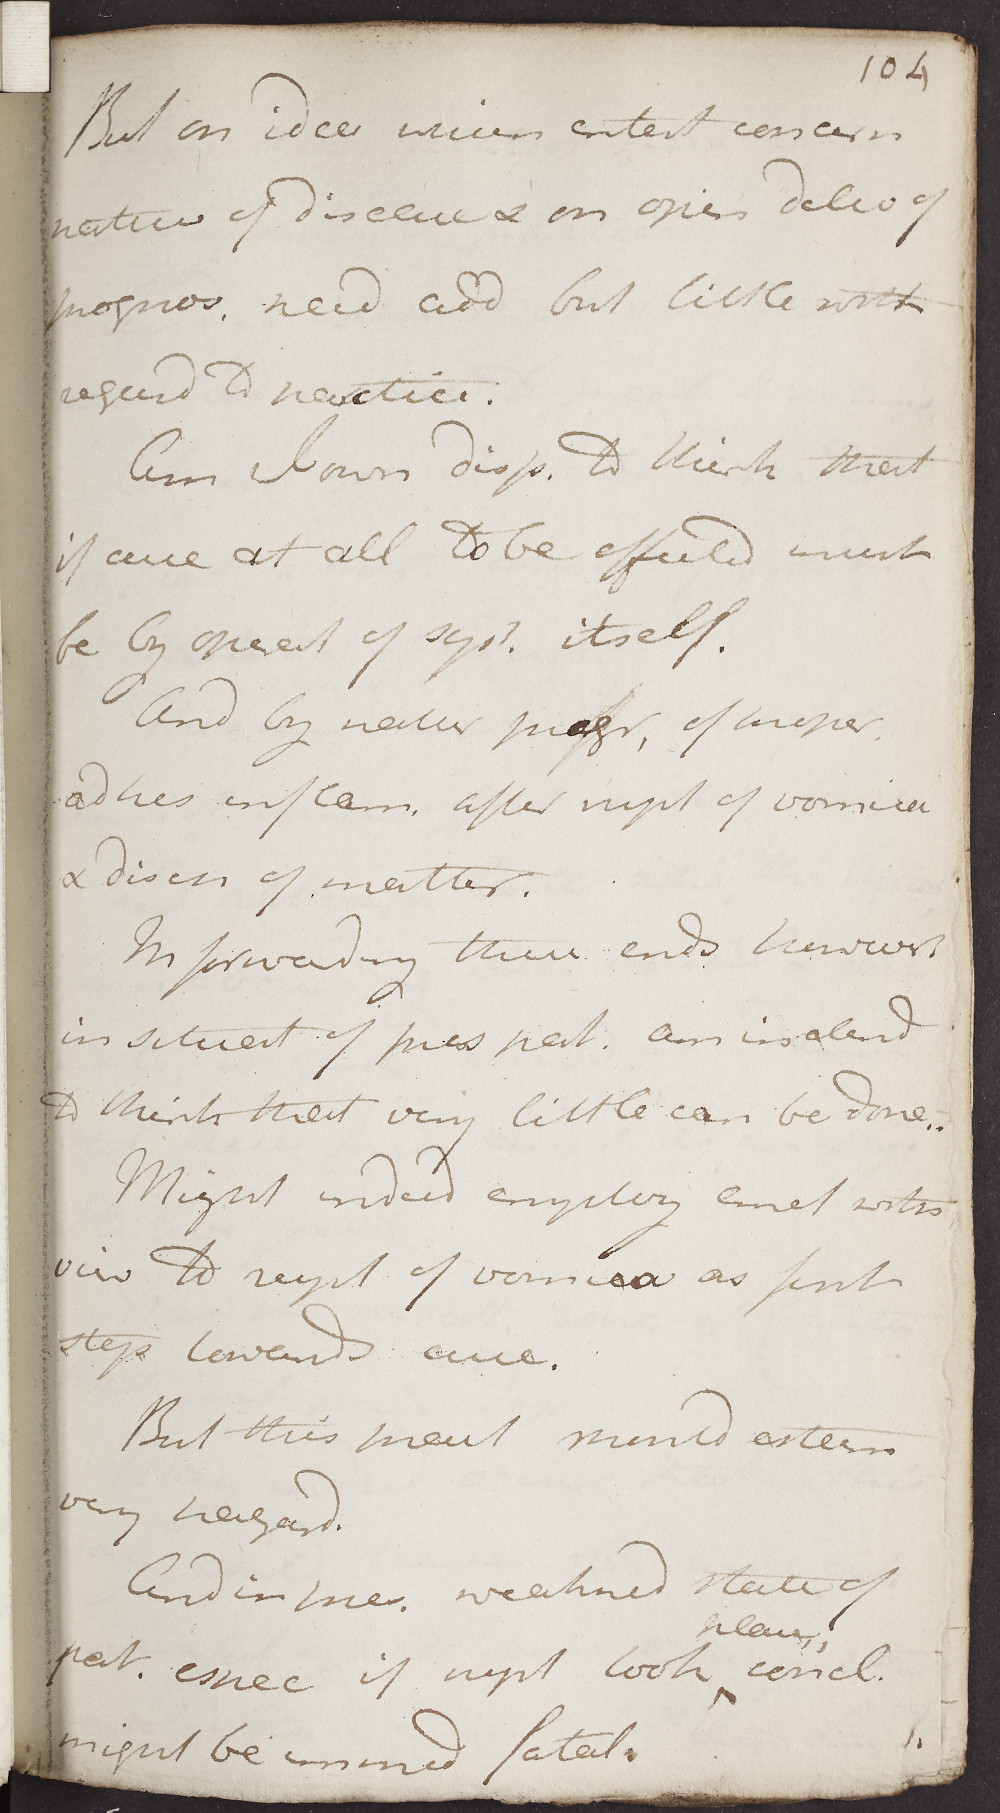 104
But on idea whien entert concern
nature of disease & on opin delivd of
prognos. need add but little with
regard to practice.
Am I own disp. to think that
if cure at all to be effected must
be by operat of syst. itself.
And by natur progr, of proper
adhes inflam. after rupt of vomica
& disch of matter.
In forwarding these ends however
in situat of pres pat. am inclend
to think that very little can be done..
Might indeed employ emet with
view to rupt of vomica as first
step towards cure.
But this pract should esteem
very hazard.
And in pres. weakned state of
pat. espec if rupt took place, concl.
might be immed fatal.
1.